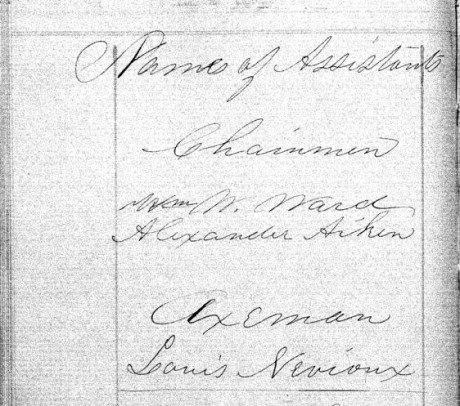 Names of Assistants
Chainmen
Wm W. Ward
Alexander Aiken
Axeman
Louis Nevioux